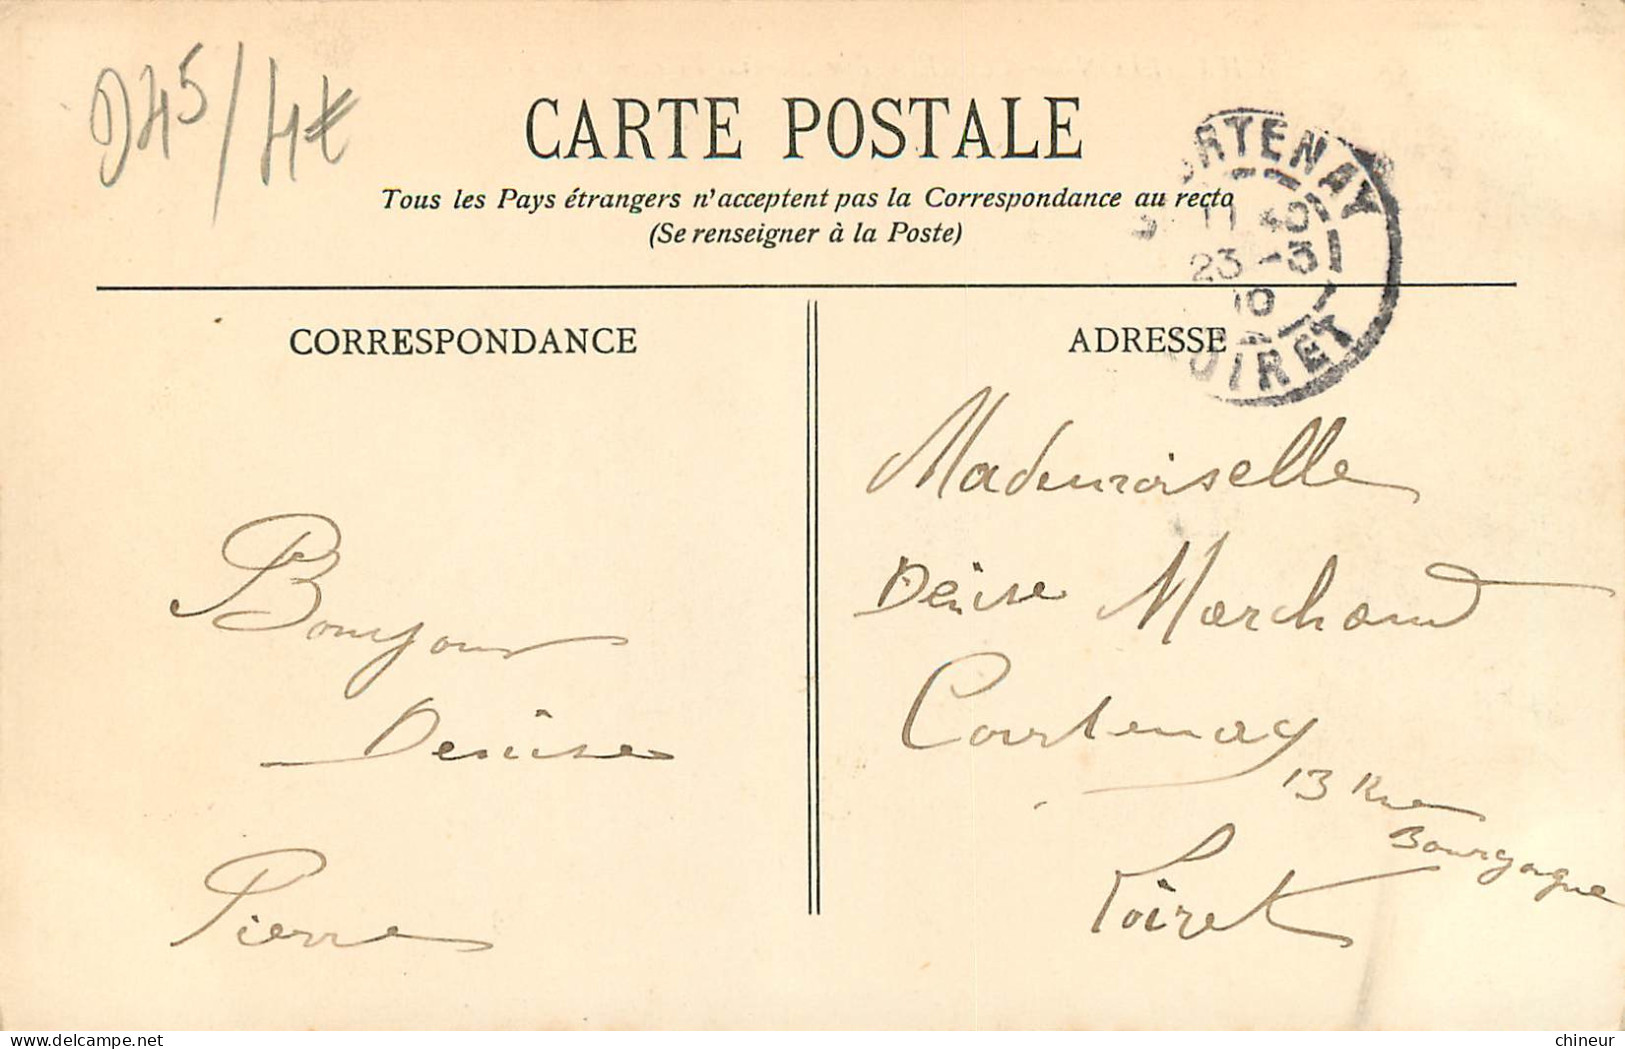 D45/4€
CARTE POSTALE
Tous les Pays étrangers n'acceptent pas la Correspondance au recto
(Se renseigner à la Poste)
RTENAY
11 40
23 -3
10
OIRET
CORRESPONDANCE
ADRESSE
Bonjour
Denise
Pierre
Mademoiselle
Denise Marchand
Courtenay
13 Rue
Bourgogne
Loiret
chineur